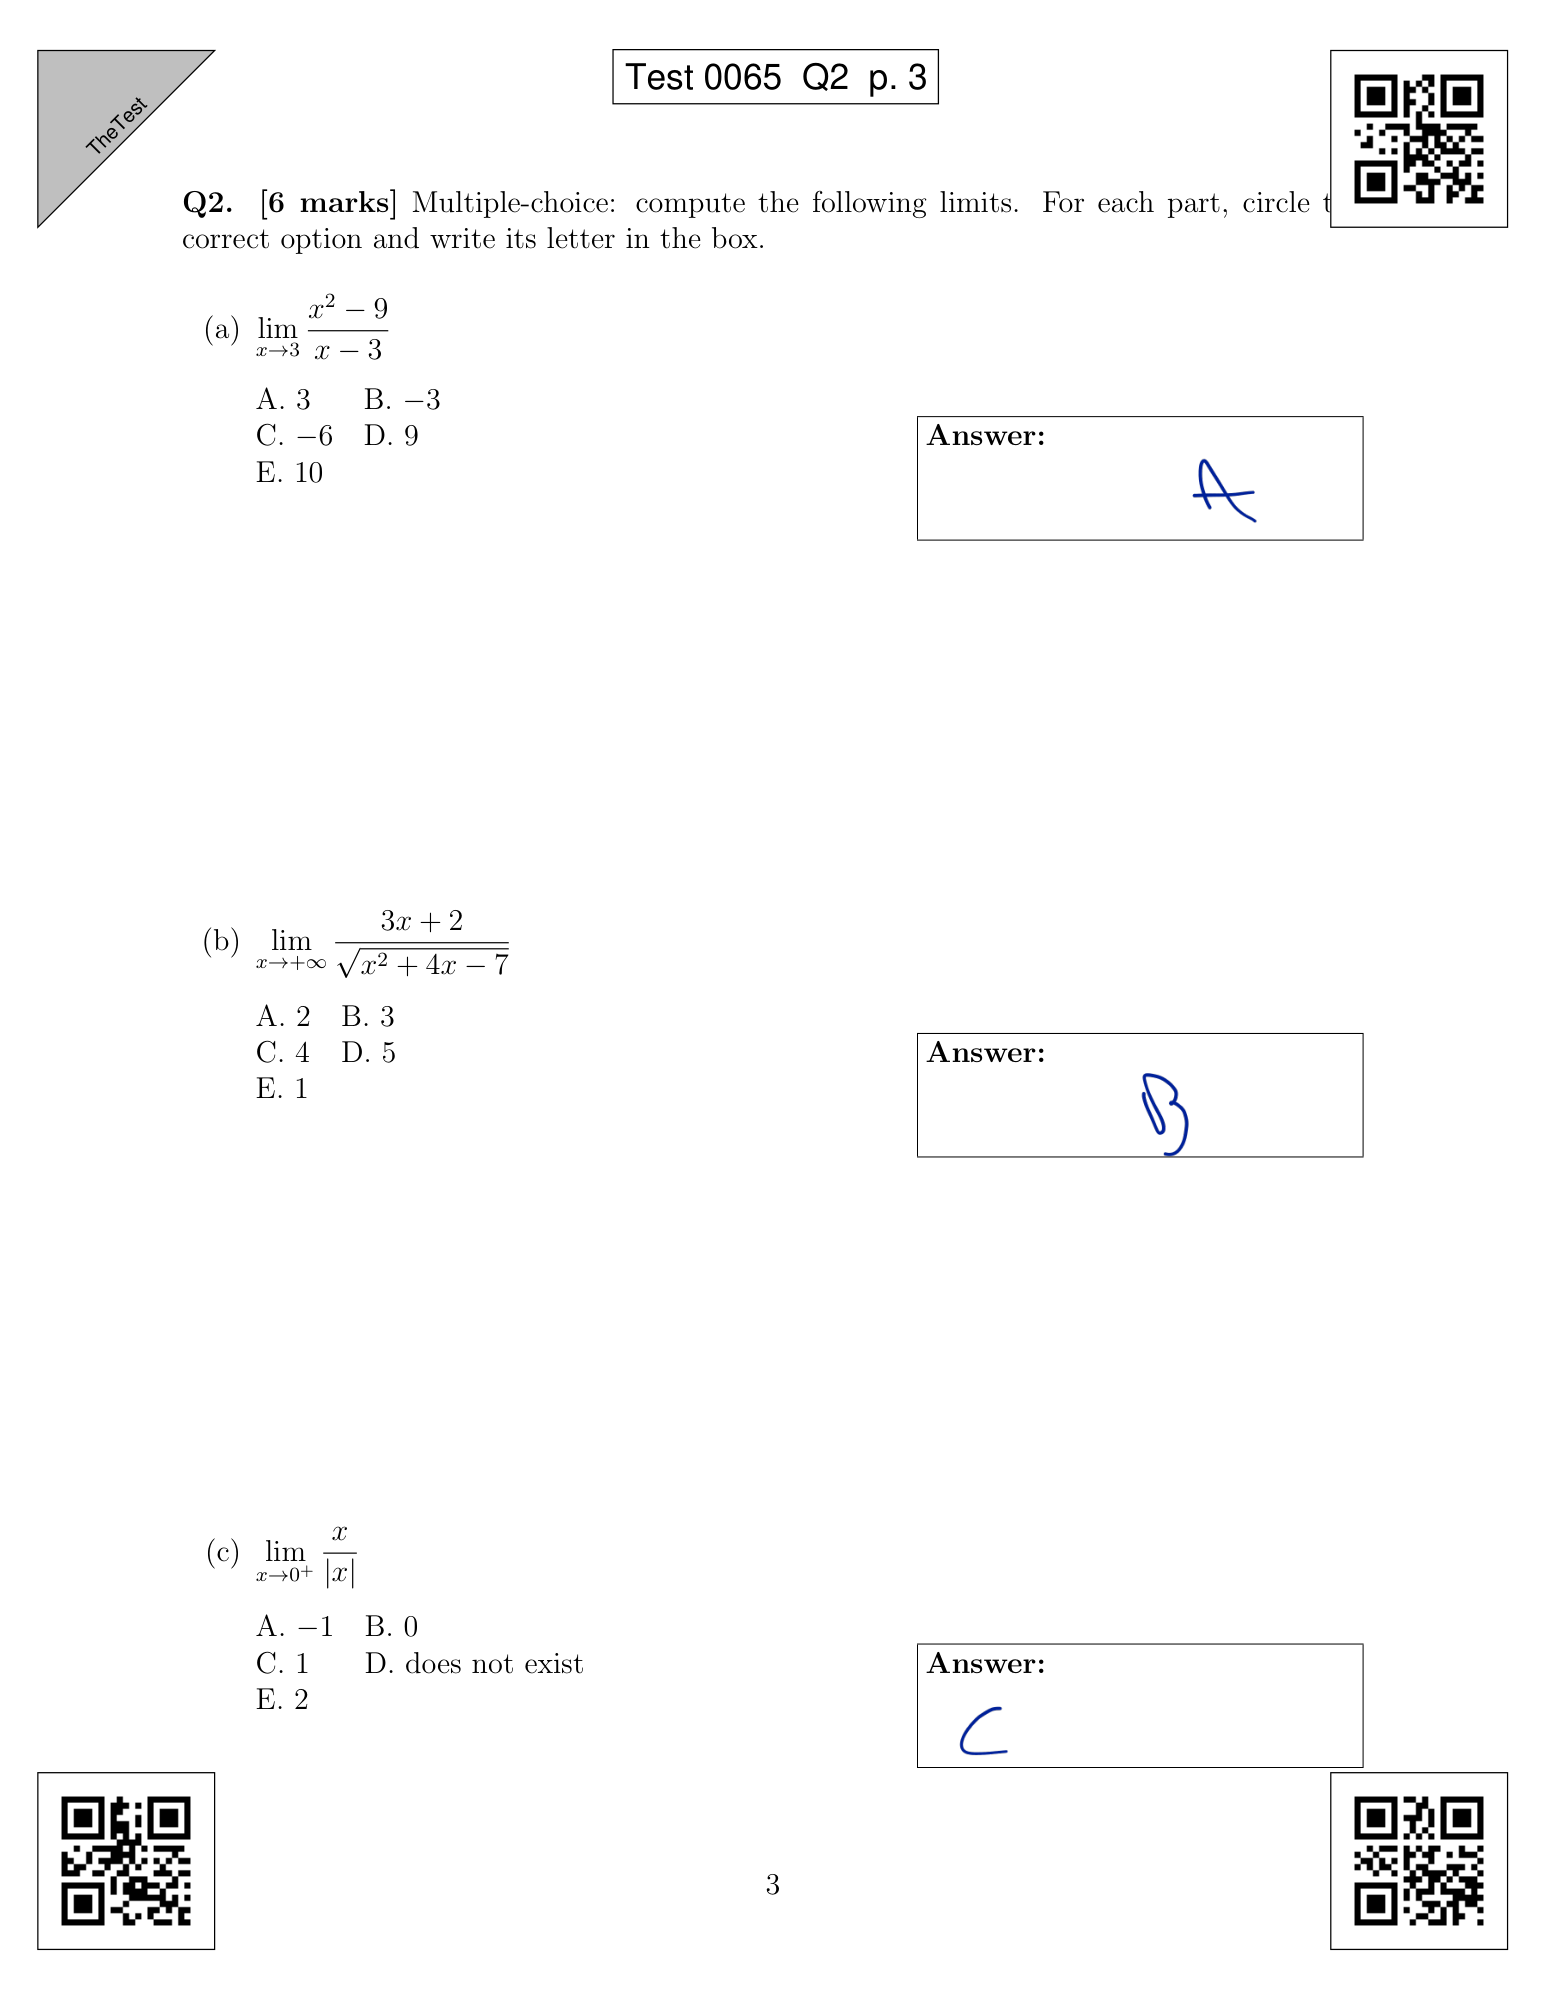 TheTest
Test 0065 Q2 p. 3
Q2. [6 marks] Multiple-choice: compute the following limits. For each part, circle t
correct option and write its letter in the box.
(a) lim_{x→3} \frac{x^2 − 9}{x − 3}
A. 3 B. −3
C. −6 D. 9
E. 10
Answer:
A
(b) lim_{x→+∞} \frac{3x + 2}{\sqrt{x^2 + 4x − 7}}
A. 2 B. 3
C. 4 D. 5
E. 1
Answer:
B
(c) lim_{x→0^+} \frac{x}{|x|}
A. −1 B. 0
C. 1 D. does not exist
E. 2
Answer:
C
3